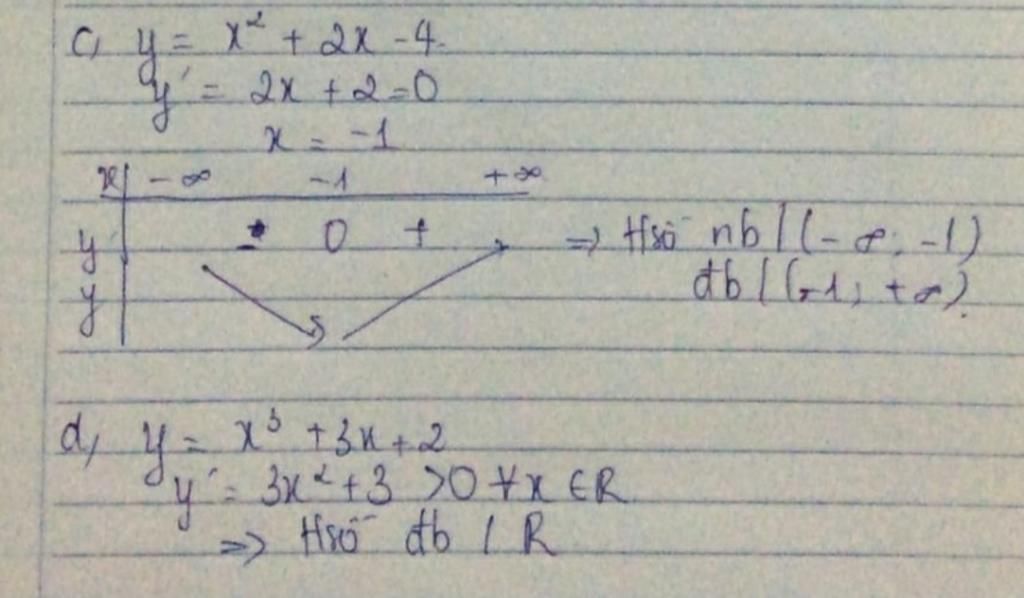 c, y = x² + 2x - 4.
y' = 2x + 2 = 0
x = -1
x | -∞ -1 +∞
y' | - 0 + => Hsố nb / (-∞; -1)
y | đb / (-1; +∞).
d, y = x³ + 3x + 2
y' = 3x² + 3 > 0 ∀x ∈ R
=> Hsố đb / R